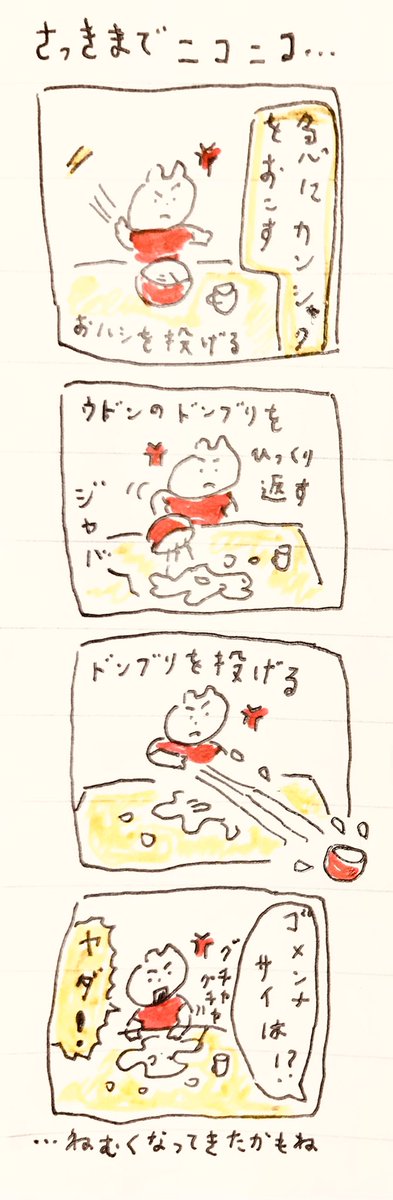 さっきまでニコニコ…
急にカンシャク
をおこす
おハシを投げる
ウドンのドンブリを
ひっくり
返す
ジャバー
ドンブリを投げる
ゴメンナ
サイは!?
グチャ
グチャ
ヤダ!
…ねむくなってきたかもね